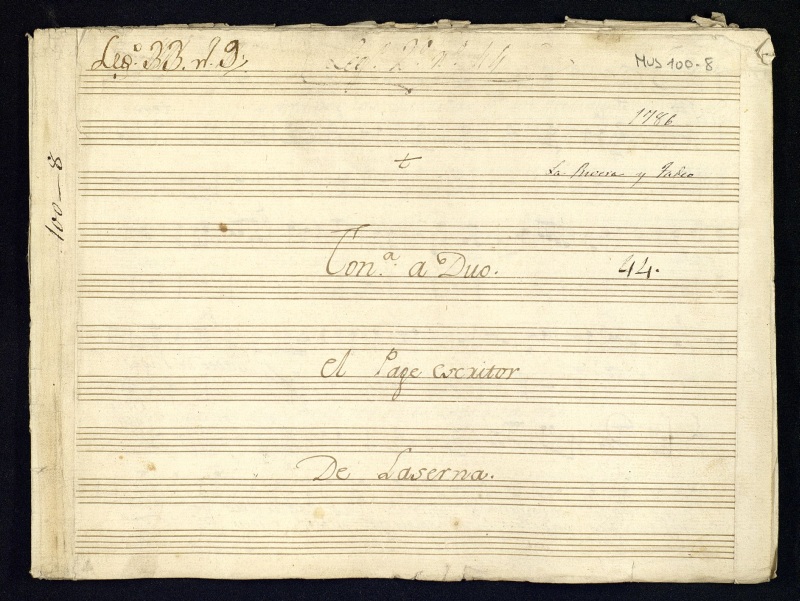 Leg.º 33. n.º 9,
Leg.º 2.º n.º 44
MUS 100-8
1786
La Rivera y Tadeo
100-8
Ton.ª a Duo.
44.
el Page escritor
De Laserna.